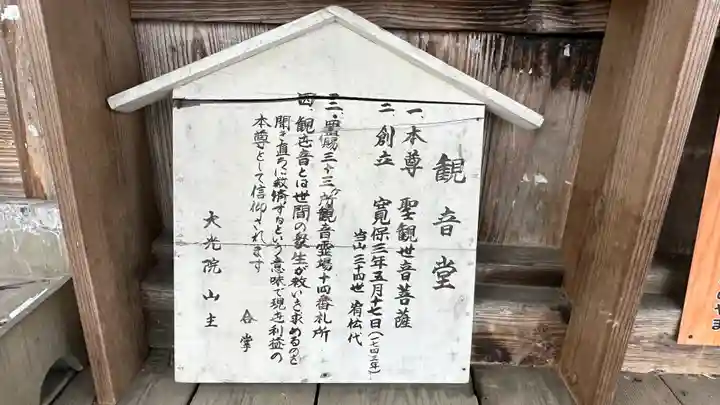 観音堂
一、本尊 聖観世音菩薩
二、創立 寛保三年五月十七日(一七四三年)
当山三十四世 宥松代
三、置賜三十三ヶ所観音霊場十四番札所
四、観世音とは世間の衆生が救いを求めるのを
聞き直ちに救済するという意味で現世利益の
本尊として信仰されます
合掌
大光院山主